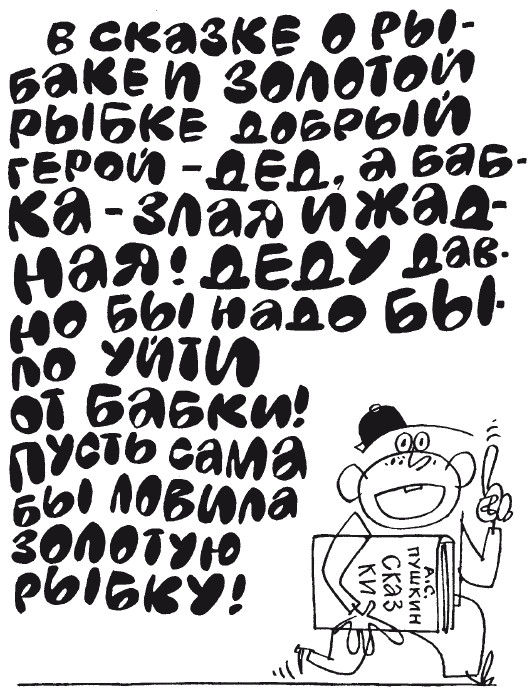 В СКАЗКЕ О РЫ-
БАКЕ И ЗОЛОТОЙ
РЫБКЕ ДОБРЫЙ
ГЕРОЙ - ДЕД, А БАБ-
КА - ЗЛАЯ И ЖАД-
НАЯ! ДЕДУ ДАВ-
НО БЫ НАДО БЫ-
ЛО УЙТИ
ОТ БАБКИ!
ПУСТЬ САМА
БЫ ЛОВИЛА
ЗОЛОТУЮ
РЫБКУ!
А.С.
ПУШКИН
СКАЗ
КИ